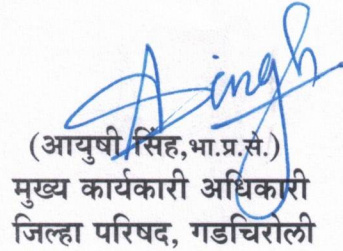 Asingh
(आयुषी सिंह,भा.प्र.से.)
मुख्य कार्यकारी अधिकारी
जिल्हा परिषद, गडचिरोली